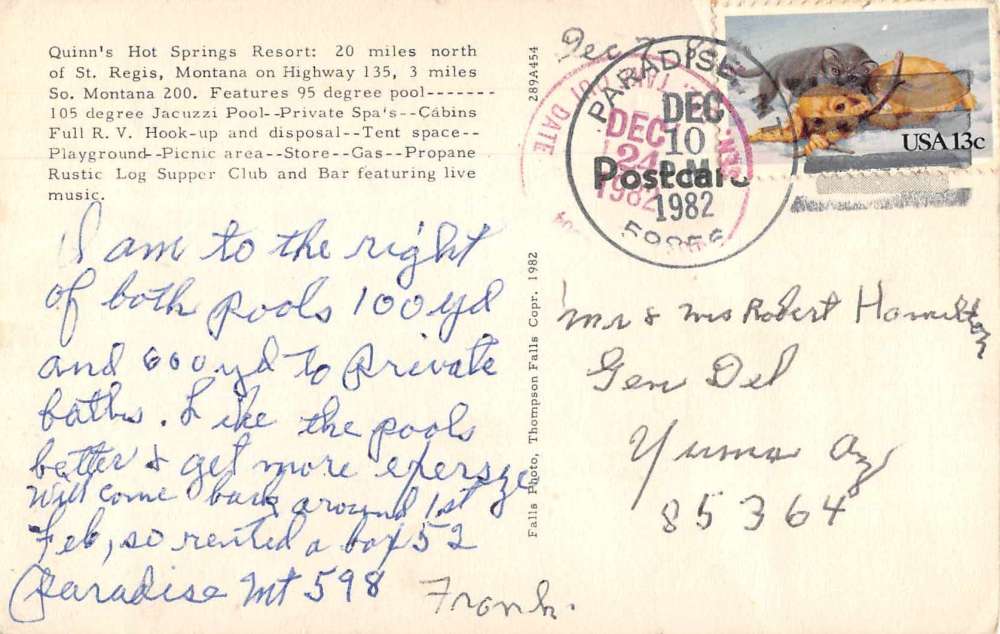 Quinn's Hot Springs Resort: 20 miles north
of St. Regis, Montana on Highway 135, 3 miles
So. Montana 200. Features 95 degree pool-------
105 degree Jacuzzi Pool--Private Spa's--Cabins
Full R. V. Hook-up and disposal--Tent space--
Playground--Picnic area--Store--Gas--Propane
Rustic Log Supper Club and Bar featuring live
music.
I am to the right
of both pools 100 yd
and 600 yd to private
baths. Like the pools
better & get more exersize
Will come back around 1st
Feb, so rented a box 52
Paradise Mt 598
Frank.
289A454
Falls Photo, Thompson Falls Copr. 1982
Dec 7
PARADISE
DEC
10
PM
1982
DEC
24
1982
DATE
Postcard
USA 13c
Mr & Mrs Robert Hamilton
Gen Del
Yuma Az
85364